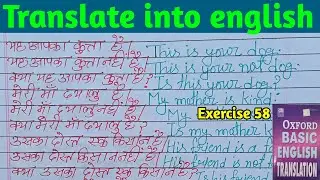 Translate into english
यह आपका कुत्ता है। This is your dog.
यह आपका कुत्ता नहीं है। This is your not dog.
क्या यह आपका कुत्ता है? Is this your dog?
मेरी माँ दयालु है। My mother is kind.
मेरी माँ दयालु नहीं है। My mother
क्या मेरी माँ दयालु है? Is my mother
Exercise 58
उसका दोस्त एक किसान है। His friend is a
उसका दोस्त किसान नहीं है। His friend is not
क्या उसका दोस्त एक किसान है?
OXFORD
BASIC
ENGLISH
TRANSLATION